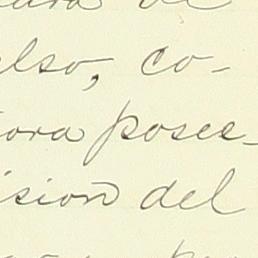 de
also, co-
ora posee-
ision del